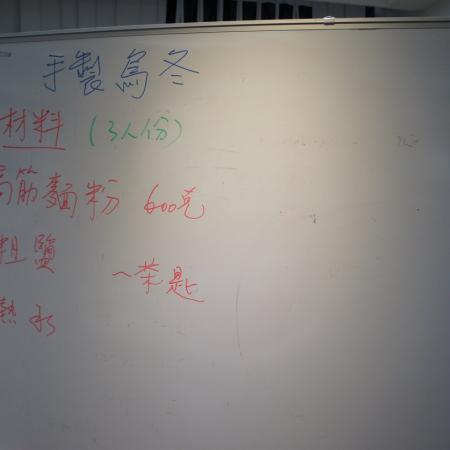 手製烏冬
材料 (3人份)
高筋麵粉 600克
粗鹽 一茶匙
熱水